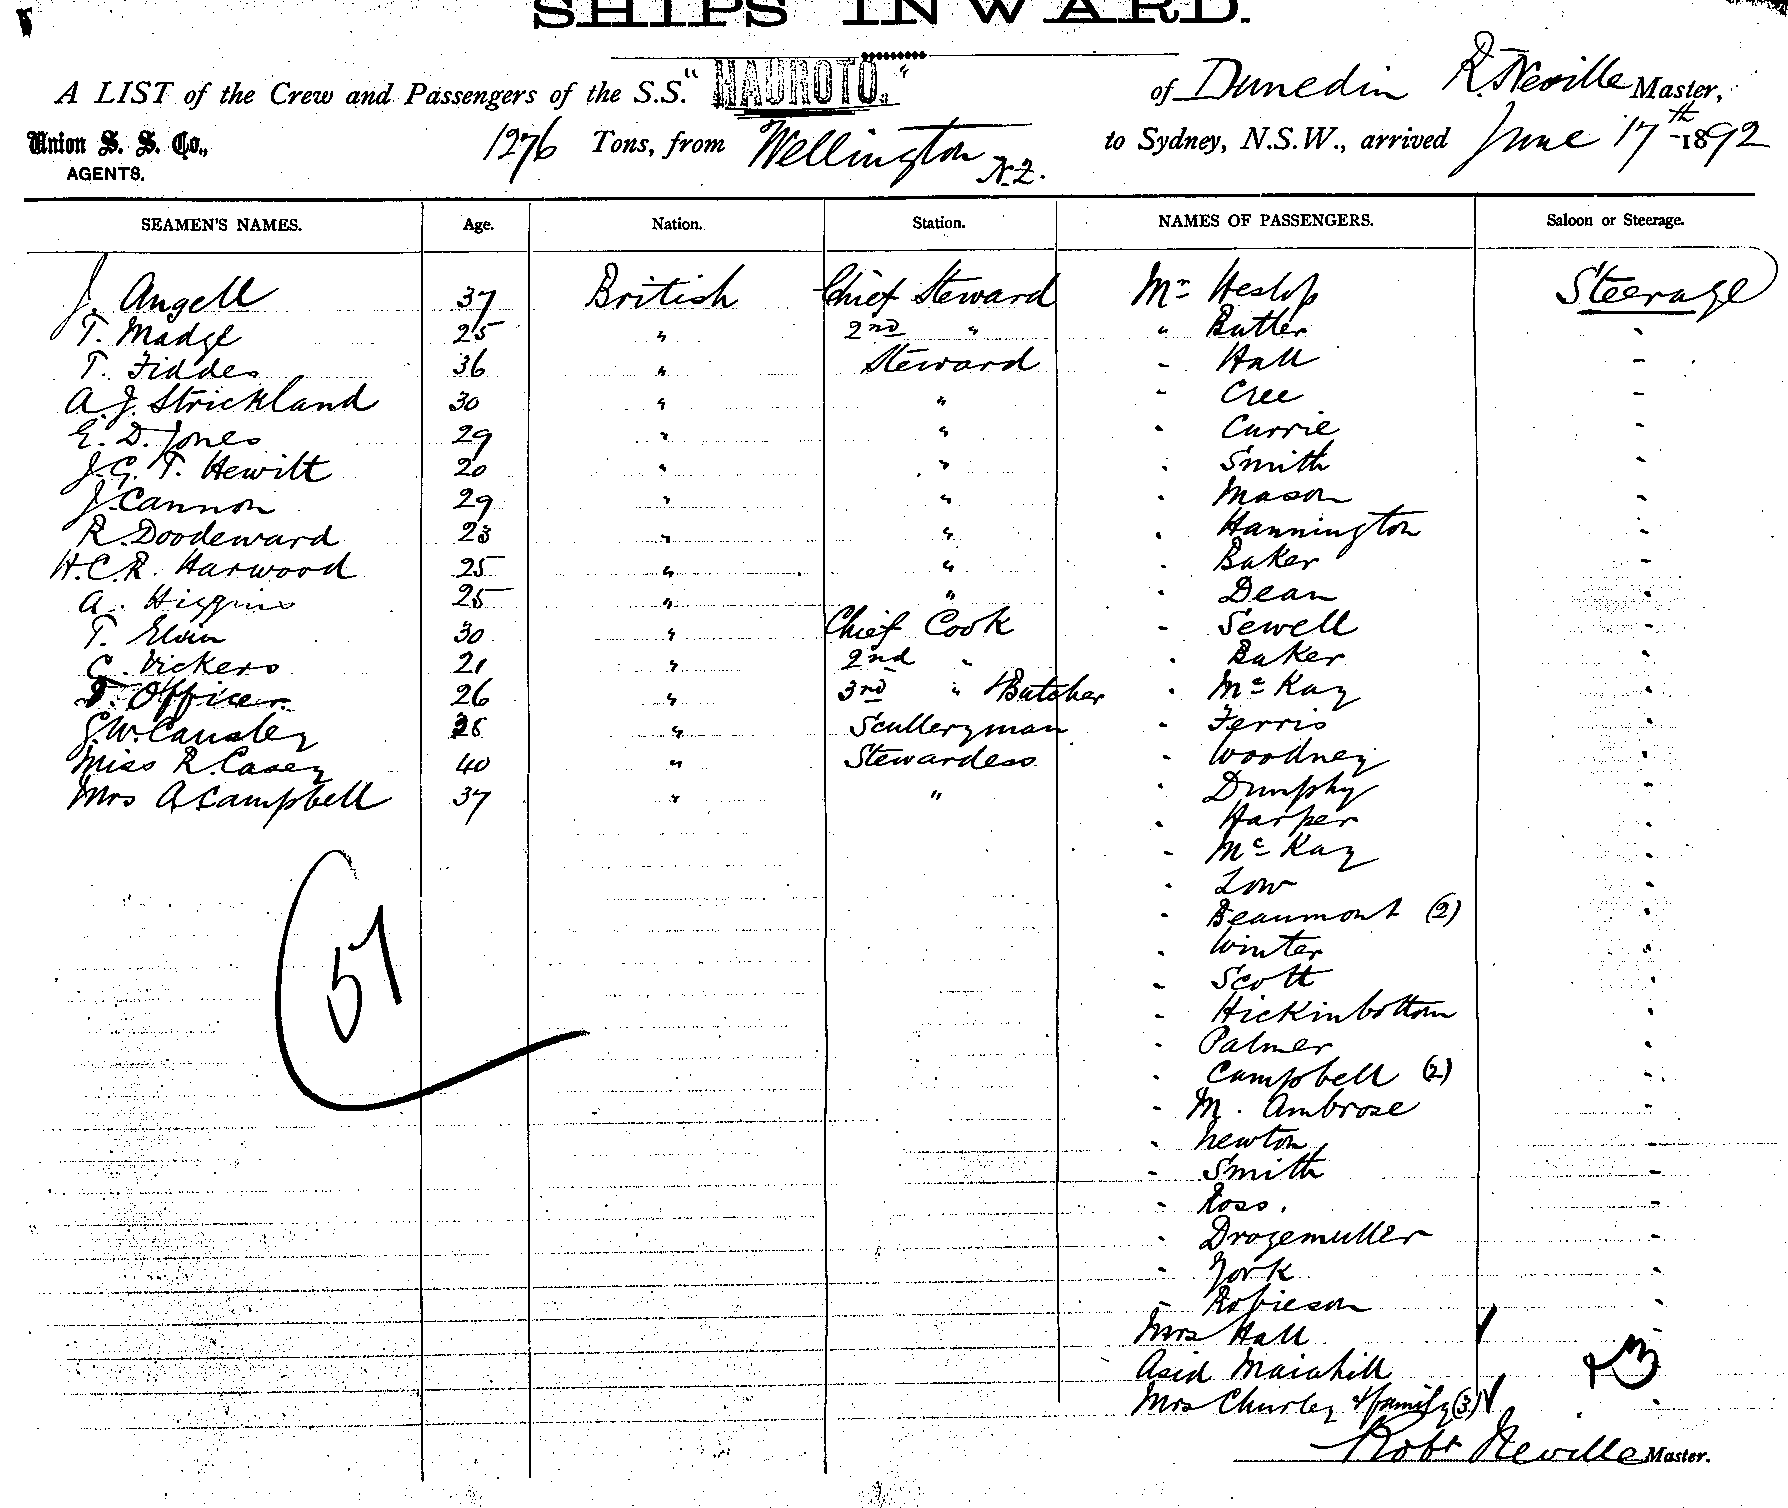 SHIPS INWARD.
A LIST of the Crew and Passengers of the S.S. "HAUROTO." of Dunedin R. Neville Master,
Union S. S. Co., AGENTS. 1276 Tons, from Wellington N.Z. to Sydney, N.S.W., arrived June 17th 1892
SEAMEN'S NAMES. Age. Nation. Station. NAMES OF PASSENGERS. Saloon or Steerage.
J. Angell 37 British Chief Steward Mr Heslop Steerage
T. Madge 25 " 2nd " " Butler "
T. Fiddes 36 " Steward " Hall "
A. J. Strickland 30 " " " Cree "
E. D. Jones 29 " " " Currie "
J. G. T. Hewitt 20 " " " Smith "
J. Cannon 29 " " " Mason "
R. Doodeward 23 " " " Hannington "
H. C. R. Harwood 25 " " " Baker "
A. Higgins 25 " " " Dean "
T. Elvin 30 " Chief Cook " Sewell "
C. Vickers 21 " 2nd " " Baker "
T. Officer 26 " 3rd " & Butcher " McKay "
G. W. Causley " Sculleryman " Ferris "
Miss R. Casey 40 " Stewardess " Woodney "
Mrs A Campbell 37 " " " Dumphy "
" Harper "
" McKay "
" Low "
" Beaumont (2) "
" Winter "
" Scott "
51
" Hickinbottom "
" Palmer "
" Campbell (2) "
" M. Ambrose "
" Newton "
" Smith "
" Ross. "
" Drogemuller "
" York "
" Robieson "
Mrs Hall "
Asid Maiahill
Mrs Churley & family (3) "
Robt Neville Master.